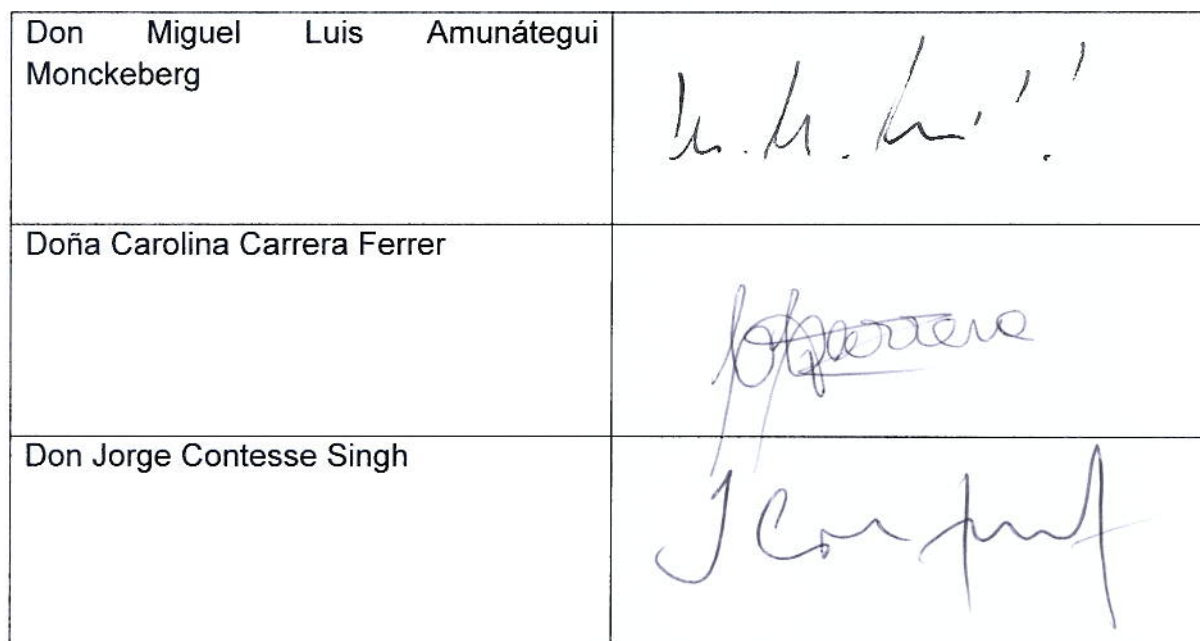 Don Miguel Luis Amunátegui
Monckeberg
Doña Carolina Carrera Ferrer
Don Jorge Contesse Singh